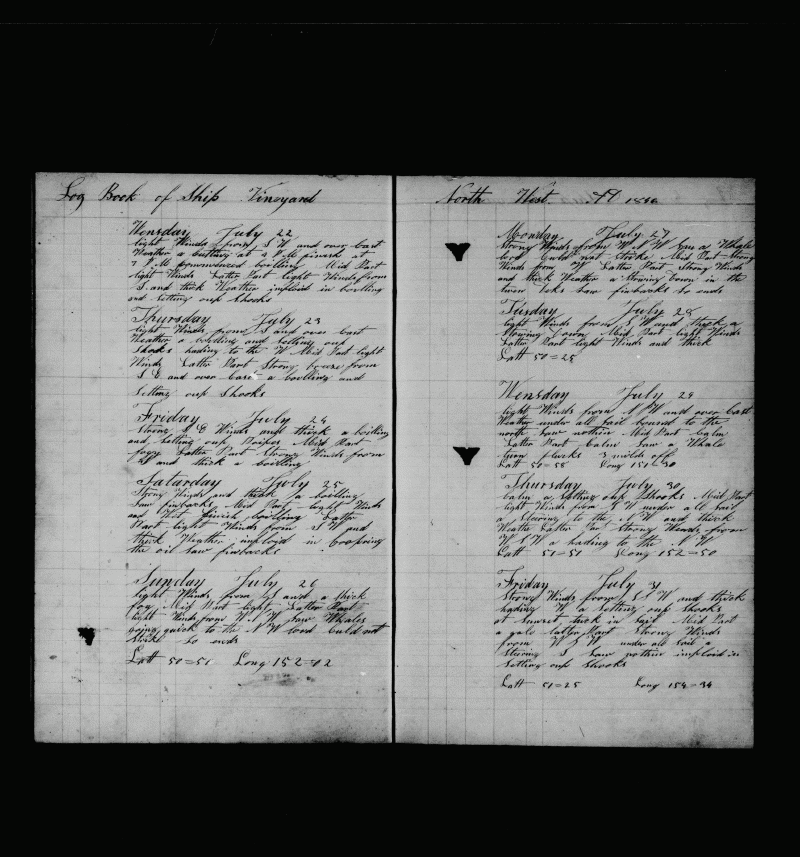 Log Book of Ship Vineyard
Wensday July 22
light Winds from S W and over Cast
Weather a Cutting at 2 P M finish at
7 P M Commenced boilling Mid Part
light Winds Latter Part light Winds from
S and thick Weather imploid in boilling
and setting oup Shooks
Thursday July 23
light Winds from S and over Cast
Weather a boilling and Setting oup
Shooks hading to the W Mid Part light
Winds Latter Part Strong from
S E and over Cast a boilling and
Setting oup Shooks
Friday July 24
Strong S E Winds and thick a boiling
and setting oup Mid Part
fogy Latter Part Strong Winds from
S and thick a boilling
Saturday July 25
Strong Winds and thick a boilling
Saw finbacks Mid Part light Winds
and Wet finish boilling Latter
Part light Winds from S W and
thick Weather imploid in Coopering
the oil Saw finbacks
Sunday July 26
light Winds from S and a thick
fog Mid Part light Latter Part
light Winds from W S W Saw Whales
going quick to the N W Could not
Strike So ends
Latt 50=51 Long 152=02
North West 1846
Monday July 27
Strong Winds from W S W a Whale
Could not Strike Mid Part Strong
Winds from W Latter Part Strong Winds
and thick Weather a Stowing Down in the
Saw finbacks So ends
Tusday July 28
light Winds from S W and thick a
Stowing Down Mid Part light Winds
Latter Part light Winds and thick
Latt 50=25
Wensday July 29
light Winds from N W and over Cast
Weather under all Sail bound to the
north Saw nothin Mid Part Calm
Latter Part Calm Saw a Whale
flucks 3 milds off
Latt 50=58 Long 151=30
Thursday July 30
Calm a Setting oup Shooks Mid Part
light Winds from S W under all Sail
a Stearing to the N W and thick
Weather Latter Part Strong Winds from
W S W a hading to the N W
Latt 51=51 Long 152=50
Friday July 31
Strong Winds from S S W and thick
hading W a Setting oup Shooks
at Sunset tuck in Sail Mid Part
a gale Latter Part Strong Winds
from W S W under all Sail a
Stearing S Saw nothin imploid in
Setting oup Shooks
Latt 51=25 Long 154=34